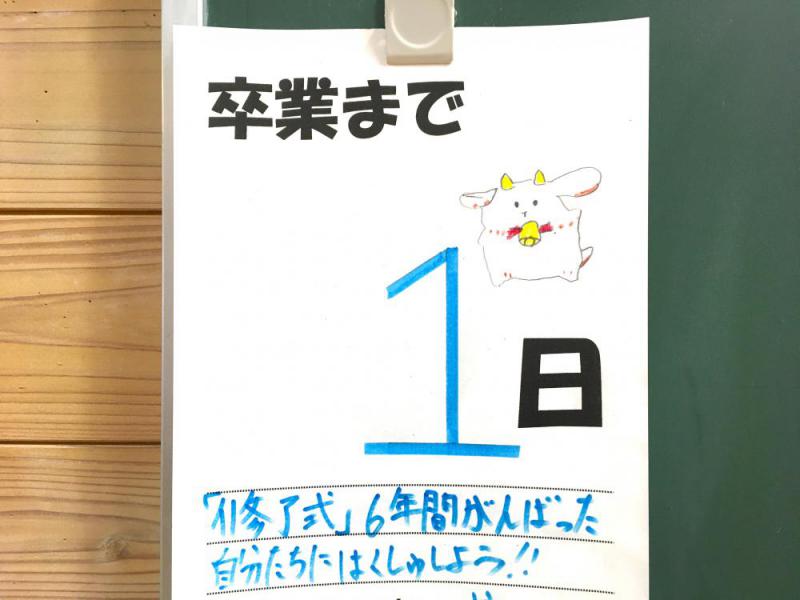 卒業まで
1
日
「修了式」6年間がんばった
自分たちにはくしゅしよう!!